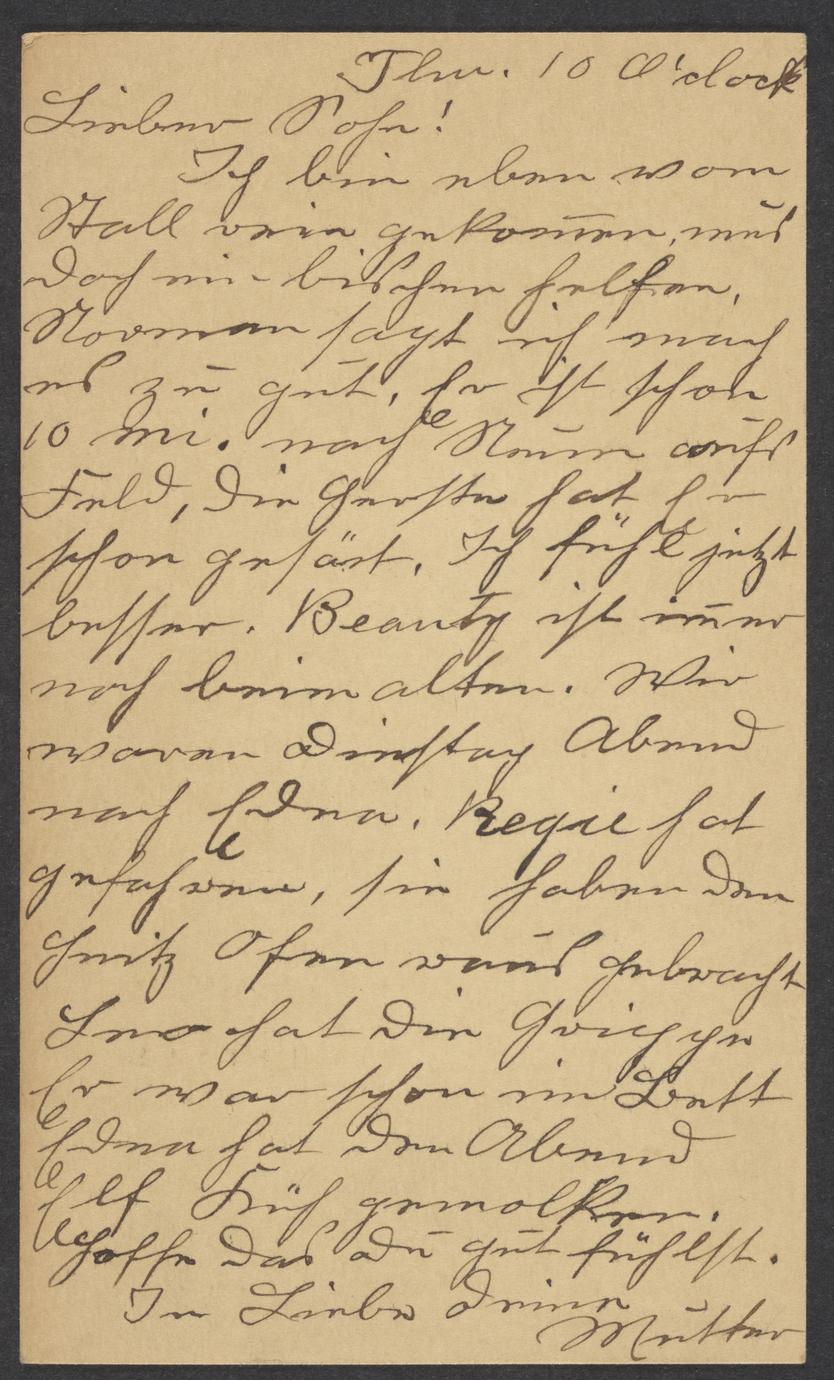 Thu. 10 O'clock
Lieber Sohn!
Ich bin eben vom
Stall rein gekom̄en, mus
doch ein bischen helfen,
Norman sagt ich mach
es zu gut, Er ist schon
10 mi. nach Neun aufs
Feld, die Gerste hat Er
schon gesät. Ich fühl jetzt
besser. Beauty ist im̄er
noch beim alten. Wir
waren Dinstag Abend
nach Edna. Regie hat
gefahren, sie haben den
Heitz Ofen raus gebracht
Leo hat die Grippe
Er war schon im Bett
Edna hat den Abend
Elf Küh gemolken.
Hoffe das du gut fühlst.
In Liebe deine
Mutter